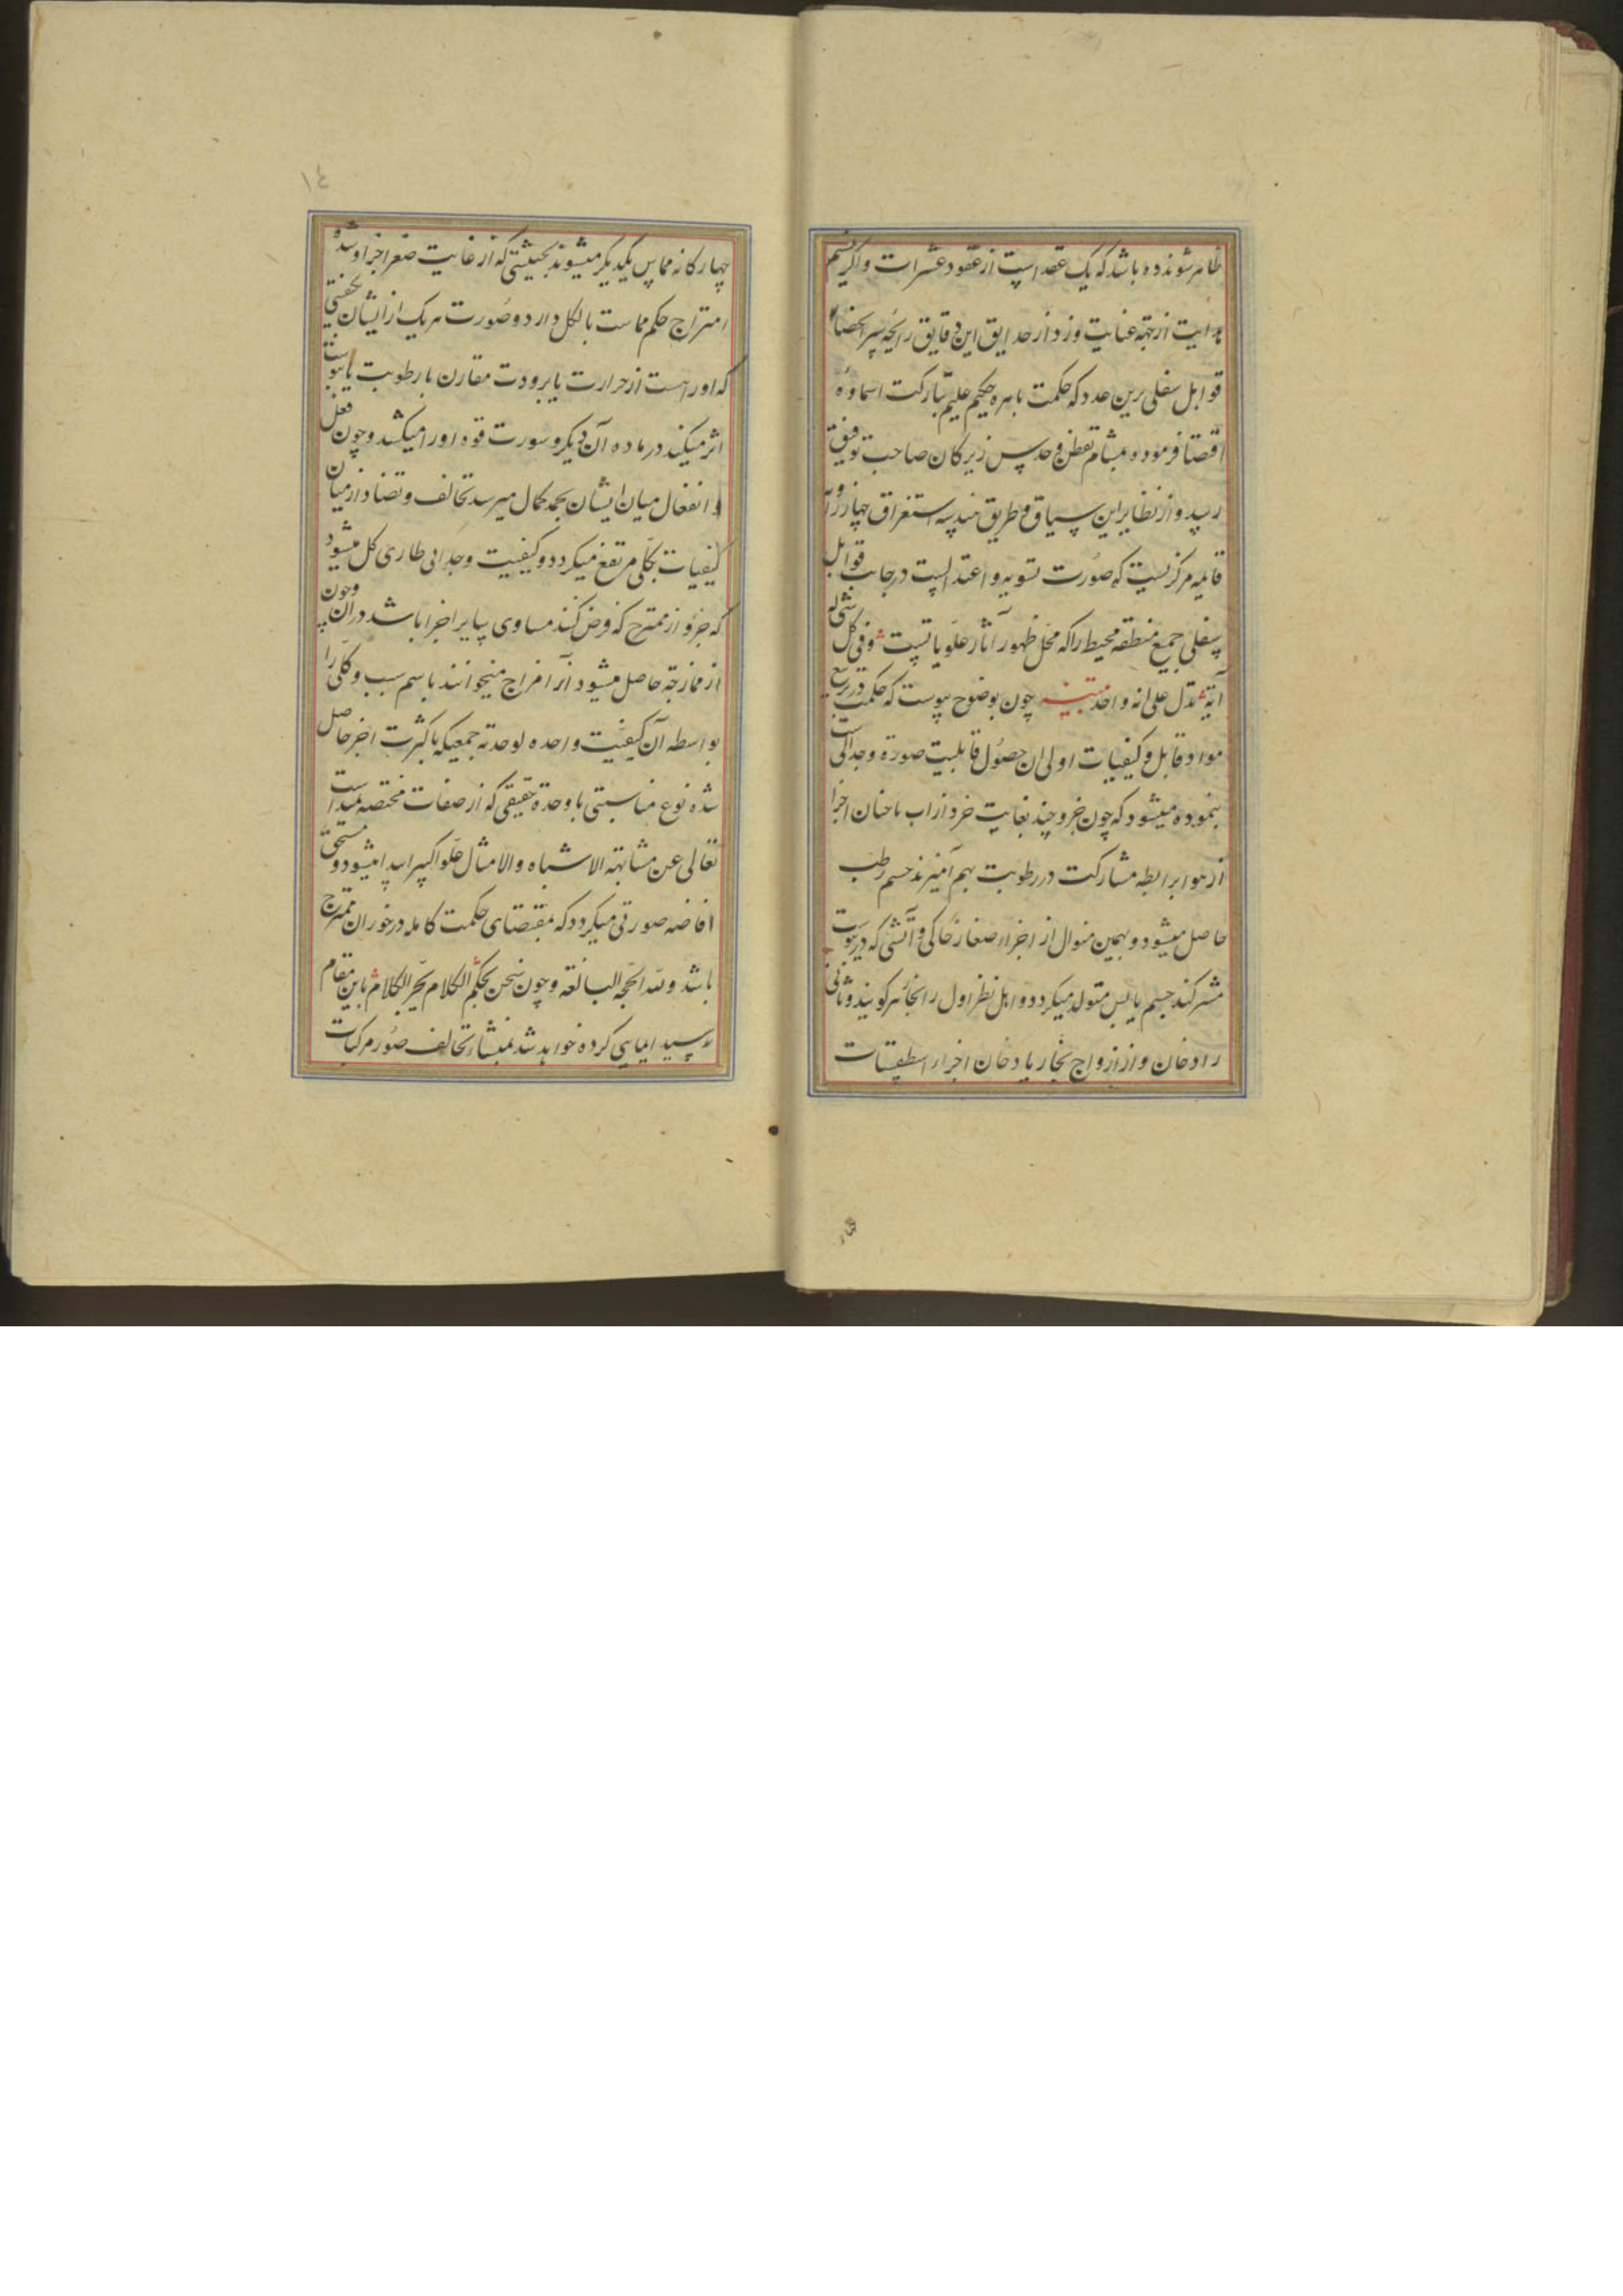 ظاهر شوند ده باشد که یک عقد است از عقود عشرات و اگر نسیم
هدایت از جهة عنایت وزد از حدایق این دقایق رایحه سر انحضار
قوابل سفلی برین عدد که حکمت باهره حکیم علیم تبارکت اسماؤه
اقتضا فرموده بمشام تفطن و حدس زیرکان صاحب توفیق
رسد و از نظایر این سیاق و طریق هندسه استغراق چهار زاویه
قایمه مرکز نسبت که صورت تسویه و اعتدالست در جانب قوابل
سفلی جمیع منطقه محیط را که محل ظهور آثار علویاتست وفی کل شیء له
آیة تدل علی انه واحد تبنیه چون بوضوح پیوست که حکمت در تربیع
مواد قابل و کیفیات اولی ان حصول قابلیت صورة وحدانی است
بنموده میشود که چون جزو چند بغایت خرد از اب باچنان اجزا
از هوا برابطه مشارکت در رطوبت بهم آمیزند جسم رطب
حاصل میشود و بهمین منوال از اجزاء صغار خاکی و آتشی که در یبوست
مشترکند جسم یابس متولد میگردد و اهل نظر اول را بخار گویند و ثانی
را دخان و از ازدواج بخار با دخان اجزاء اسطقسات
شار
١٤
چهارکانه مماس یکدیگر میشوند بحیثیتی که از غایت صغر اجزا و شدة
امتزاج حکم مماست بالکل دارد و صورت هر یک از ایشان بکیفیتی
که او راهست از حرارت یا برودت مقارن با رطوبت یا یبوست
اثر میکند در ماده آن دیگر و سورت قوه او را میکشد و چون فعل
و انفعال میان ایشان بحد کمال میرسد تخالف و تضاد از میان
کیفیات بکلی مرتفع میگردد و کیفیت وحدانی طاری کل میشود
که جزو از ممتزج که فرض کنند مساوی سایر اجزا باشد در ان و چون
از ممازجة حاصل میشود آنرا مزاج میخوانند باسم سبب و کل را
بواسطه آن کیفیت واحده لوحدته جمعیکه با کثرت اجزا حاصل
شده نوع مناسبتی با وحدة حقیقی که از صفات مختصه مبداست
تعالی عن مشابهة الاشباه والامثال علوا کبیرا پیدا میشود و مستحق
افاضه صورتی میگردد که بمقتضای حکمت کامله درخور ان ممتزج
باشد ولله الحجه البالغه و چون سخن بحکم الکلام یجر الکلام باین مقام
رسید ایمایی کرده خواهد شد بمنشاء تخالف صور مرکبات